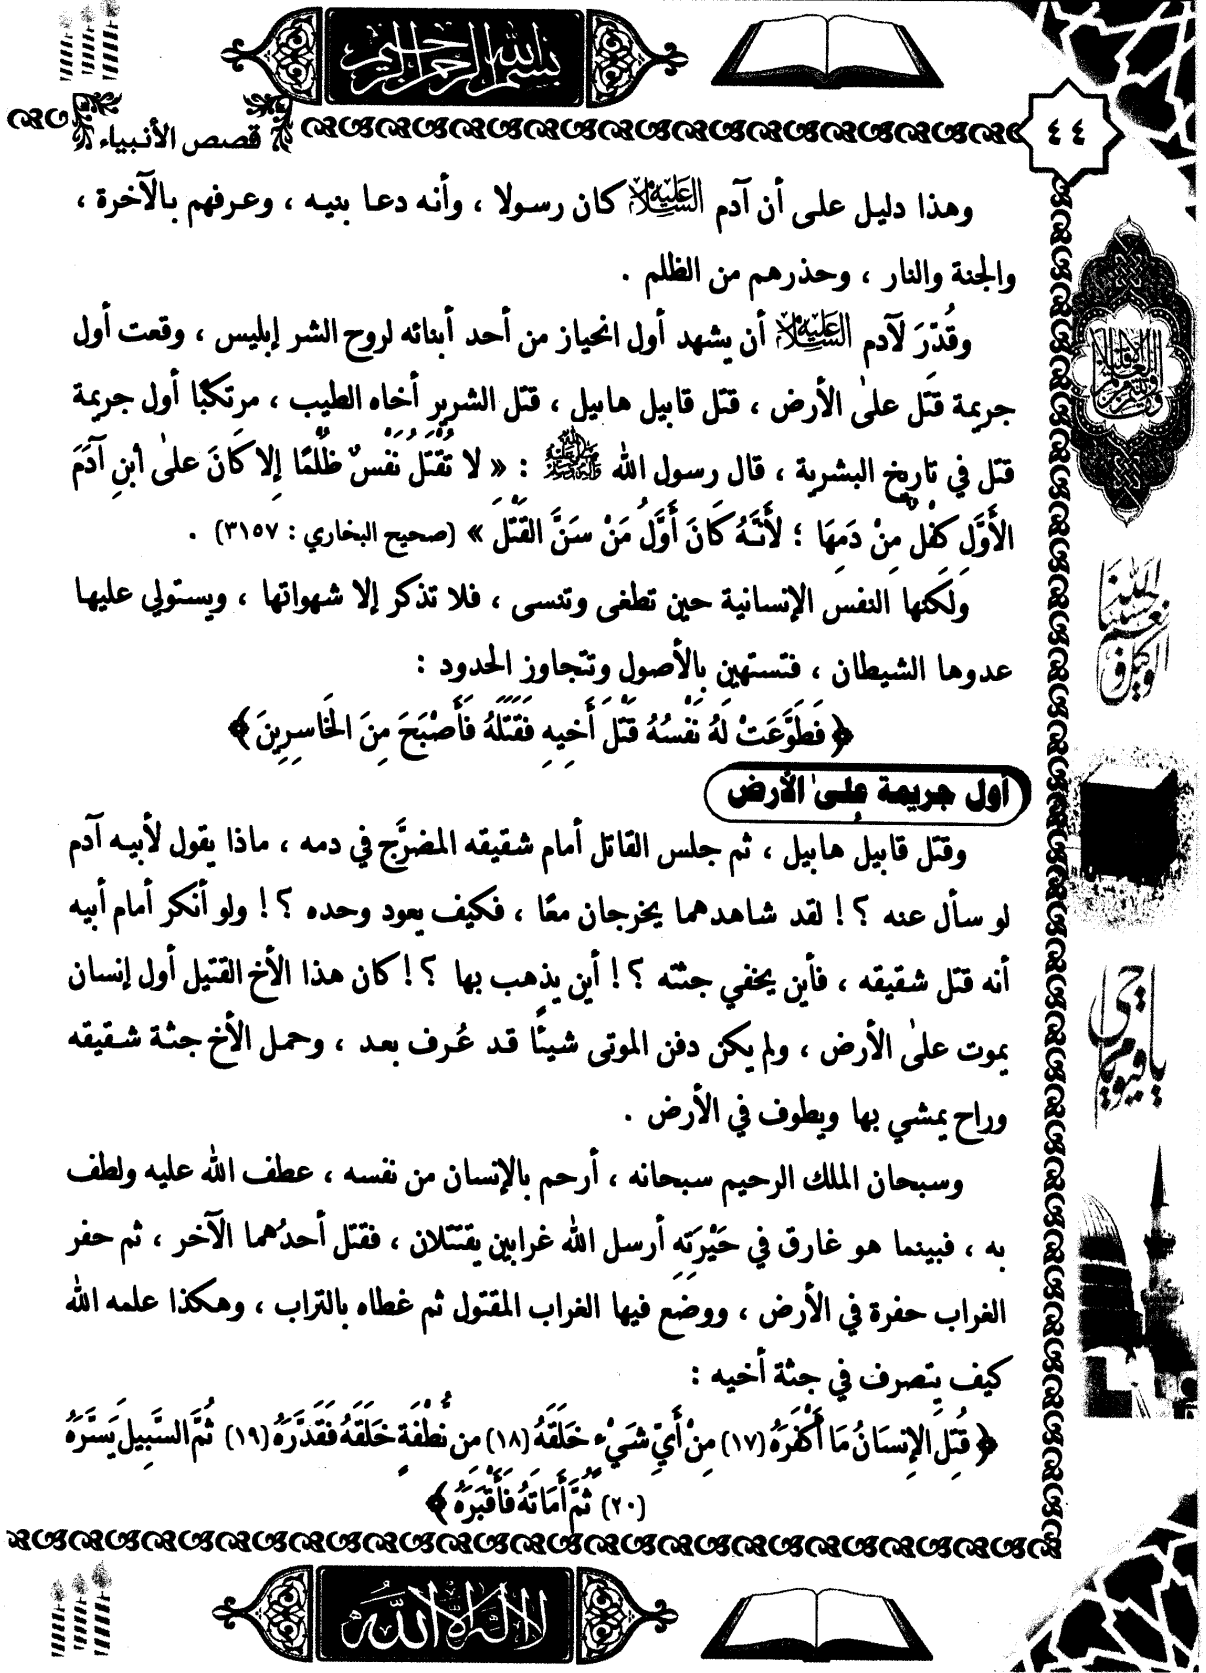 بسم الله الرحمن الرحيم
٤٤
قصص الأنبياء
وهذا دليل على أن آدم عليه السلام كان رسولا ، وأنه دعا بنيه ، وعرفهم بالآخرة ،
والجنة والنار ، وحذرهم من الظلم .
وقُدِّرَ لآدم عليه السلام أن يشهد أول انحياز من أحد أبنائه لروح الشر إبليس ، وقعت أول
جريمة قتل على الأرض ، قتل قابيل هابيل ، قتل الشرير أخاه الطيب ، مرتكبًا أول جريمة
قتل في تاريخ البشرية ، قال رسول الله ﷺ : « لا تُقْتَلُ نَفْسٌ ظُلْمًا إِلا كَانَ عَلىٰ ابنِ آدَمَ
الأَوَّلِ كِفْلٌ مِنْ دَمِهَا ؛ لأَنَّهُ كَانَ أَوَّلَ مَنْ سَنَّ القَتْلَ » (صحيح البخاري : ٣١٥٧) .
ولكنها النفس الإنسانية حين تطغى وتنسى ، فلا تذكر إلا شهواتها ، ويستولي عليها
عدوها الشيطان ، فتستهين بالأصول وتتجاوز الحدود :
﴿ فَطَوَّعَتْ لَهُ نَفْسُهُ قَتْلَ أَخِيهِ فَقَتَلَهُ فَأَصْبَحَ مِنَ الخَاسِرِينَ ﴾
أول جريمة على الأرض
وقتل قابيل هابيل ، ثم جلس القاتل أمام شقيقه المضرَّج في دمه ، ماذا يقول لأبيه آدم
لو سأل عنه ؟! لقد شاهدهما يخرجان معًا ، فكيف يعود وحده ؟! ولو أنكر أمام أبيه
أنه قتل شقيقه ، فأين يخفي جثته ؟! أين يذهب بها ؟! كان هذا الأخ القتيل أول إنسان
يموت علىٰ الأرض ، ولم يكن دفن الموتى شيئًا قد عُرف بعد ، وحمل الأخ جثة شقيقه
وراح يمشي بها ويطوف في الأرض .
وسبحان الملك الرحيم سبحانه ، أرحم بالإنسان من نفسه ، عطف الله عليه ولطف
به ، فبينما هو غارق في حَيْرَتِهِ أرسل الله غرابين يقتتلان ، فقتل أحدُهما الآخر ، ثم حفر
الغراب حفرة في الأرض ، ووضع فيها الغراب المقتول ثم غطاه بالتراب ، وهكذا علمه الله
كيف يتصرف في جثة أخيه :
﴿ قُتِلَ الإِنسَانُ مَا أَكْفَرَهُ (١٧) مِنْ أَيِّ شَيْءٍ خَلَقَهُ (١٨) مِن نُّطْفَةٍ خَلَقَهُ فَقَدَّرَهُ (١٩) ثُمَّ السَّبِيلَ يَسَّرَهُ
(٢٠) ثُمَّ أَمَاتَهُ فَأَقْبَرَهُ ﴾
حسبنا الله ونعم الوكيل
يا حي يا قيوم
لا إله إلا الله